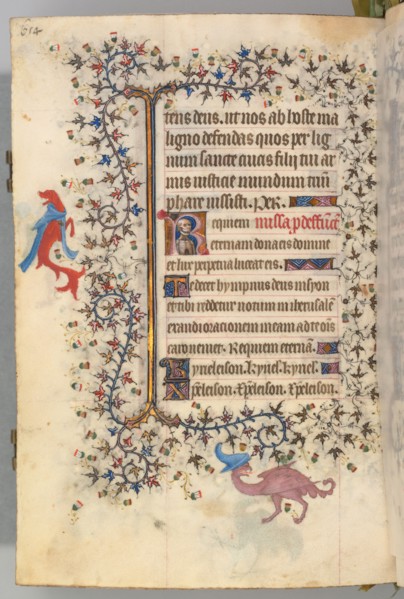 614
tens deus. ut nos ab hoste ma
ligno defendas quos per lig
num sancte crucis filij tui ar
mis iusticie mundum
phare iussisti. Per.
Requiem missa p deffunct
eternam dona eis domine
et lux perpetua luceat eis.
Te decet hympnus deus in syon
et tibi reddetur votum in iherusalē
exaudi orationem meam ad te oīs
caro veniet. Requiem eternā.
Kyrieleison. Kyriel. Kyriel.
Xpēleison. Xpēleison. Xpēleison.